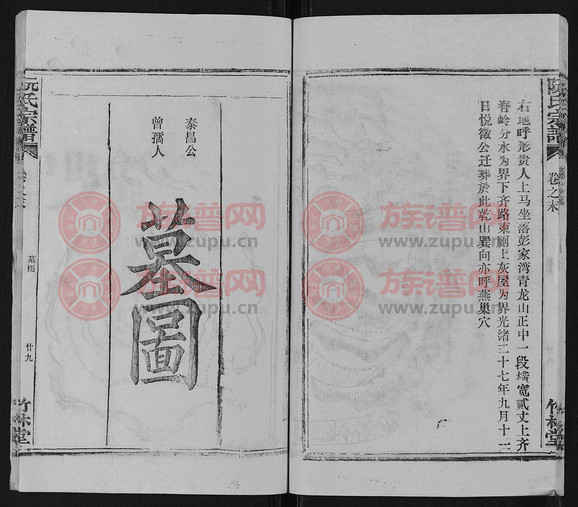 阮氏宗譜
卷之末
竹林堂
右地呼形貴人上馬坐落彭家湾青龍山正中一段橫寬貳丈上齊
脊岭分水为界下齐路東廁上灰屋为界光绪二十七年九月十二
日悦徽公迁葬於此乾山巽向亦呼燕巢穴
泰昌公
曾孺人
墓圖
阮氏宗譜
卷之末
墓图
廿九
竹林堂
族谱网
www.zupu.cn
族谱网
www.zupu.cn
族谱网
www.zupu.cn
族谱网
www.zupu.cn
族谱网
www.zupu.cn
族谱网
www.zupu.cn